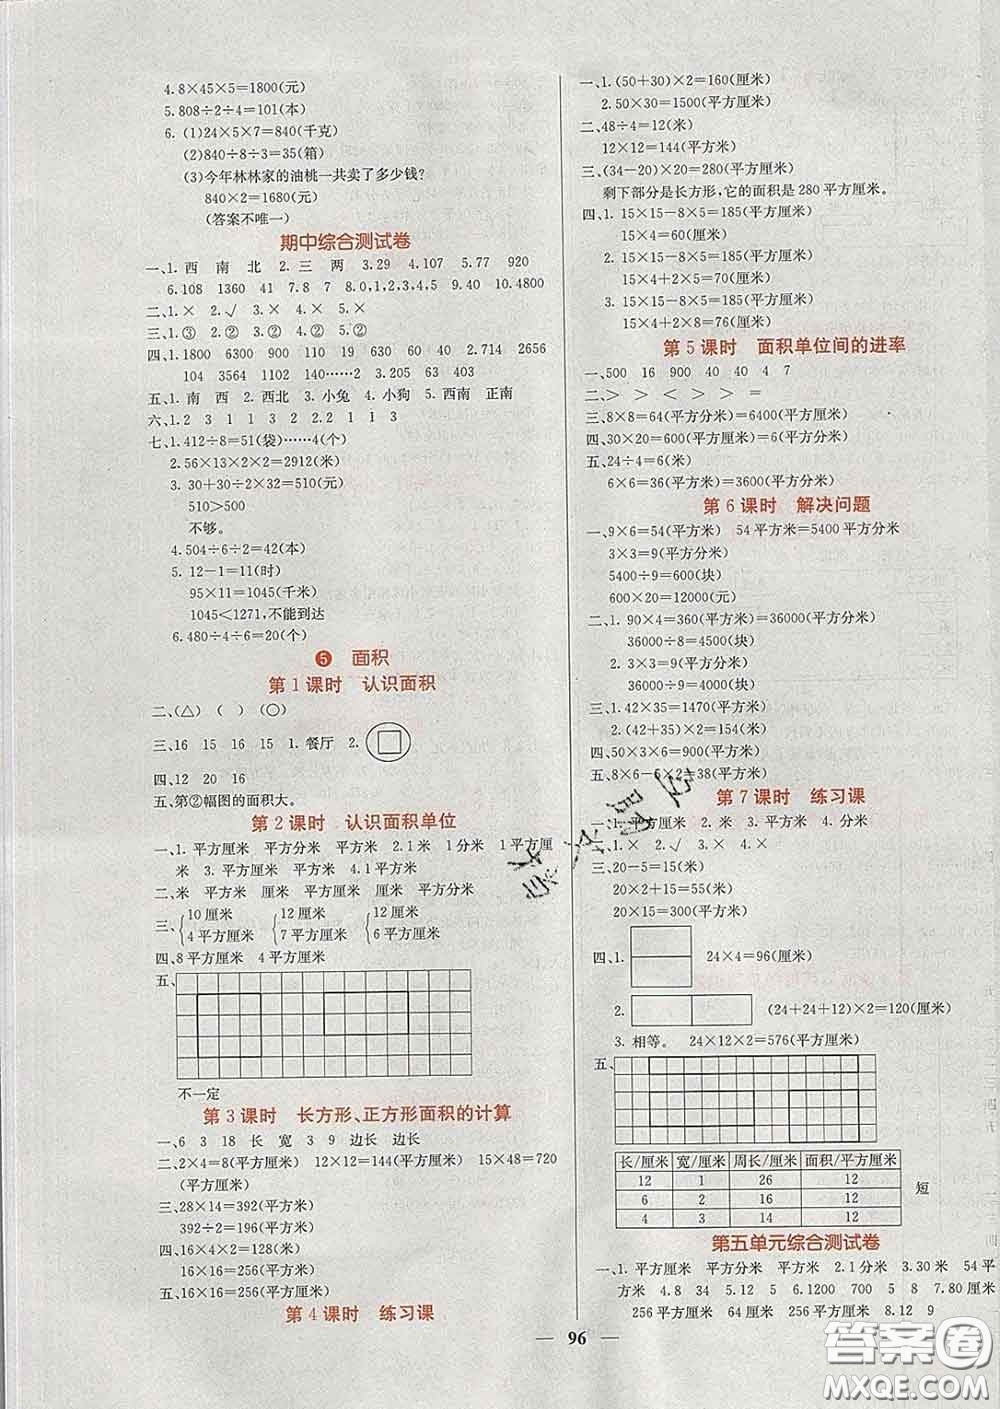 4.8×45×5=1800(元)
5.808÷2÷4=101(本)
6.(1)24×5×7=840(千克)
(2)840÷8÷3=35(箱)
(3)今年林林家的油桃一共卖了多少钱?
840×2=1680(元)
(答案不唯一)
期中综合测试卷
一、1.西 南 北 2.三 两 3.29 4.107 5.77 920
6.108 1360 41 7.8 7 8.0,1,2,3,4,5 9.40 10.4800
二、1.× 2.√ 3.× 4.× 5.×
三、1.③ 2.② 3.② 4.② 5.②
四、1.1800 6300 900 110 40 2.714 2656
104 3564 1280 140……2 3.205 63 403
五、1.南 西 2.西北 3.小兔 4.小狗 5.西南 正南
六、1.2 3 1 1 3 2 2.2 1 1 3
七、1.412÷8=51(袋)……4(个)
2.56×13×2×2=2912(米)
3.30+30÷2×32=510(元)
510>500
不够。
4.504÷6÷2=42(本)
5.12-1=11(时)
95×11=1045(千米)
1045<1271,不能到达
6.480÷4÷6=20(个)
5 面积
第1课时 认识面积
二、(△) ( ) (○)
三、16 15 16 15 1.餐厅 2.
四、12 20 16
五、第②幅图的面积大。
第2课时 认识面积单位
一、1.平方厘米 平方分米 平方米 2.1米 1分米 1平方厘
米 3.平方厘米 4.1平方米
二、米 平方米 厘米 平方厘米 分米 平方分米
三、{10厘米 {12厘米 {12厘米
4平方厘米 7平方厘米 6平方厘米
四、8平方厘米 4平方厘米
五、
不一定
第3课时 长方形、正方形面积的计算
一、6 3 18 长 宽 3 9 边长 边长
二、2×4=8(平方厘米) 12×12=144(平方厘米) 15×48=720
(平方厘米)
三、28×14=392(平方米)
392÷2=196(平方米)
四、16×4×2=128(米)
16×16=256(平方米)
五、16×16=256(平方米)
第4课时 练习课
一、1.(50+30)×2=160(厘米)
2.50×30=1500(平方厘米)
二、48÷4=12(米)
12×12=144(平方米)
三、(34-20)×20=280(平方厘米)
剩下部分是长方形,它的面积是280平方厘米。
四、1.15×15-8×5=185(平方厘米)
15×4=60(厘米)
2.15×15-8×5=185(平方厘米)
15×4+2×5=70(厘米)
3.15×15-8×5=185(平方厘米)
15×4+2×8=76(厘米)
第5课时 面积单位间的进率
一、500 16 900 40 40 4 7
二、> > > > > =
三、8×8=64(平方分米)=6400(平方厘米)
四、30×20=600(平方厘米)=6(平方分米)
五、24÷4=6(米)
6×6=36(平方米)=3600(平方分米)
第6课时 解决问题
一、9×6=54(平方米) 54平方米=5400平方分米
3×3=9(平方分米)
5400÷9=600(块)
600×20=12000(元)
二、1.90×4=360(平方米)=36000(平方分米)
36000÷8=4500(块)
2.3×3=9(平方分米)
36000÷9=4000(块)
三、1.42×35=1470(平方米)
2.(42+35)×2=154(米)
四、50×3×6=900(平方米)
五、8×6-5×2=38(平方厘米)
第7课时 练习课
一、1.平方厘米 2.米 3.平方米 4.分米
二、1.× 2.√ 3.× 4.×
三、20-5=15(米)
20×2+15=55(米)
20×15=300(平方米)
四、1. 24×4=96(厘米)
2. (24+24+12)×2=120(厘米)
3.相等。 24×12×2=576(平方厘米)
五、
长/厘米 宽/厘米 周长/厘米 面积/平方厘米
12 1 26 12
6 2 16 12
4 3 14 12
短
第五单元综合测试卷
一、1.平方厘米 平方分米 平方米 2.1分米 3.30米 54平
方米 4.8 34 5.12 5 6.1200 700 5 8 7.80厘米
256平方厘米 64厘米 256平方厘米 8.12 9
96
答案圈
MXQE.COM